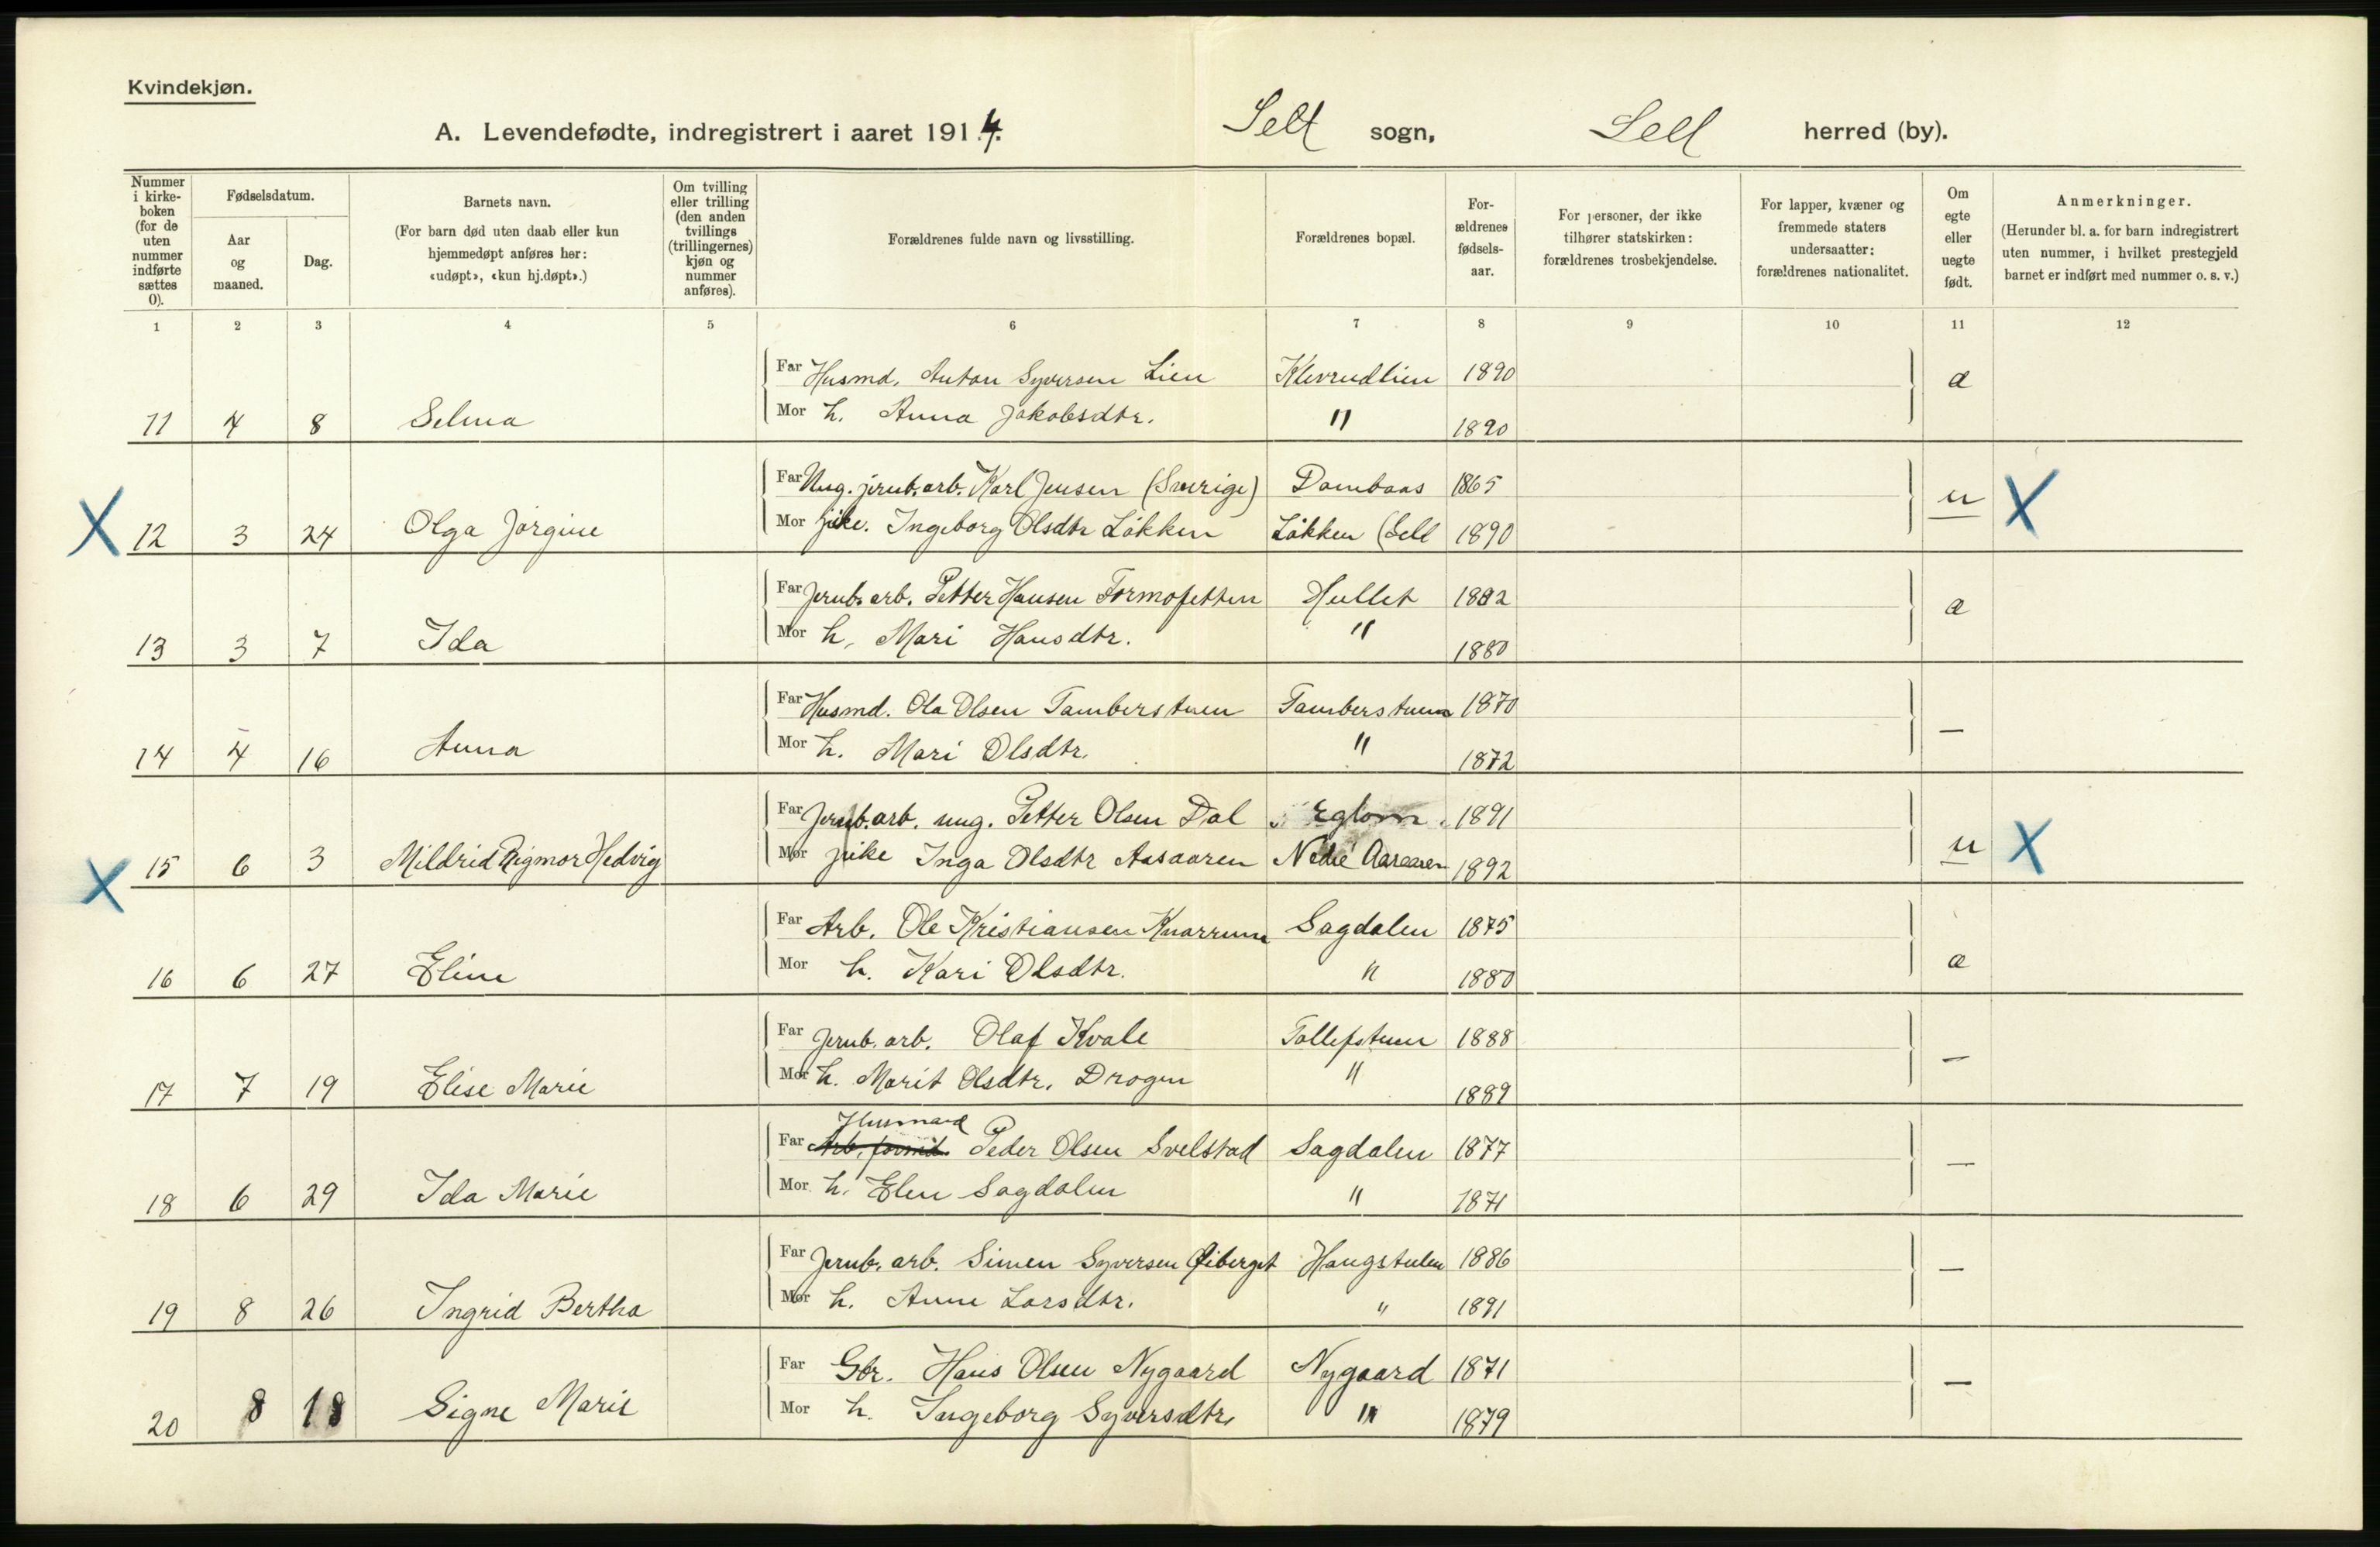 Kvindekjøn.
A. Levendefødte, indregistrert i aaret 1914. Sell sogn, Sell herred (by).
Nummer i kirke-boken (for de uten nummer indførte sættes 0).
Fødselsdatum.
Aar og maaned.
Dag.
Barnets navn.
(For barn død uten daab eller kun hjemmedøpt anføres her: «udøpt», «kun hj.døpt».)
Om tvilling eller trilling (den anden tvillings (trillingernes) kjøn og nummer anføres).
Forældrenes fulde navn og livsstilling.
Forældrenes bopæl.
For-ældrenes fødsels-aar.
For personer, der ikke tilhører statskirken: forældrenes trosbekjendelse.
For lapper, kvæner og fremmede staters undersaatter: forældrenes nationalitet.
Om egte eller uegte født.
Anmerkninger.
(Herunder bl. a. for barn indregistrert uten nummer, i hvilket prestegjeld barnet er indført med nummer o. s. v.)
1 2 3 4 5 6 7 8 9 10 11 12
Far Husmd. Anton Syversen Lien Klevrudlien 1890 a
11 4 8 Selma Mor h. Anna Jakobsdtr. " 1890
Far Ung. jernb.arb. Karl Jensen (Sverige) Dombaas 1865 u X
X 12 3 24 Olga Jørgine Mor pike. Ingeborg Olsdtr Løkken Løkken (Sell 1890
Far Jernb. arb. Petter Hansen Formofetten Hullet 1882 a
13 3 7 Ida Mor h. Mari Hansdtr. " 1880
Far Husmd. Ola Olsen Tamberstuen Tamberstuen 1870 —
14 4 16 Anna Mor h. Mari Olsdtr. " 1872
Far Jernb. arb. ung. Petter Olsen Dal Eglom 1891 u X
X 15 6 3 Mildrid Rigmor Hedvig Mor pike Inga Olsdtr Aasaaren Nedre 1892
Far Arb. Ole Kristiansen Sagdalen 1875 a
16 6 27 Eline Mor h. Kari Olsdtr. " 1880
Far Jernb. arb. Olaf Kvale Tollefstuen 1888 —
17 7 19 Elise Marie Mor h. Marit Olsdtr. Drogen " 1889
Husmand
Far Arb. Peder Olsen Svelstad Sagdalen 1877 —
18 6 29 Ida Marie Mor h. Elen Sagdalen " 1871
Far Jernb. arb. Simen Syversen Øiberget Haugstulen 1886 —
19 8 26 Ingrid Bertha Mor h. Anne Larsdtr. " 1891
Far Gbr. Hans Olsen Nygaard Nygaard 1871 —
20 8 18 Signe Marie Mor h. Ingeborg Syversdtr. " 1879